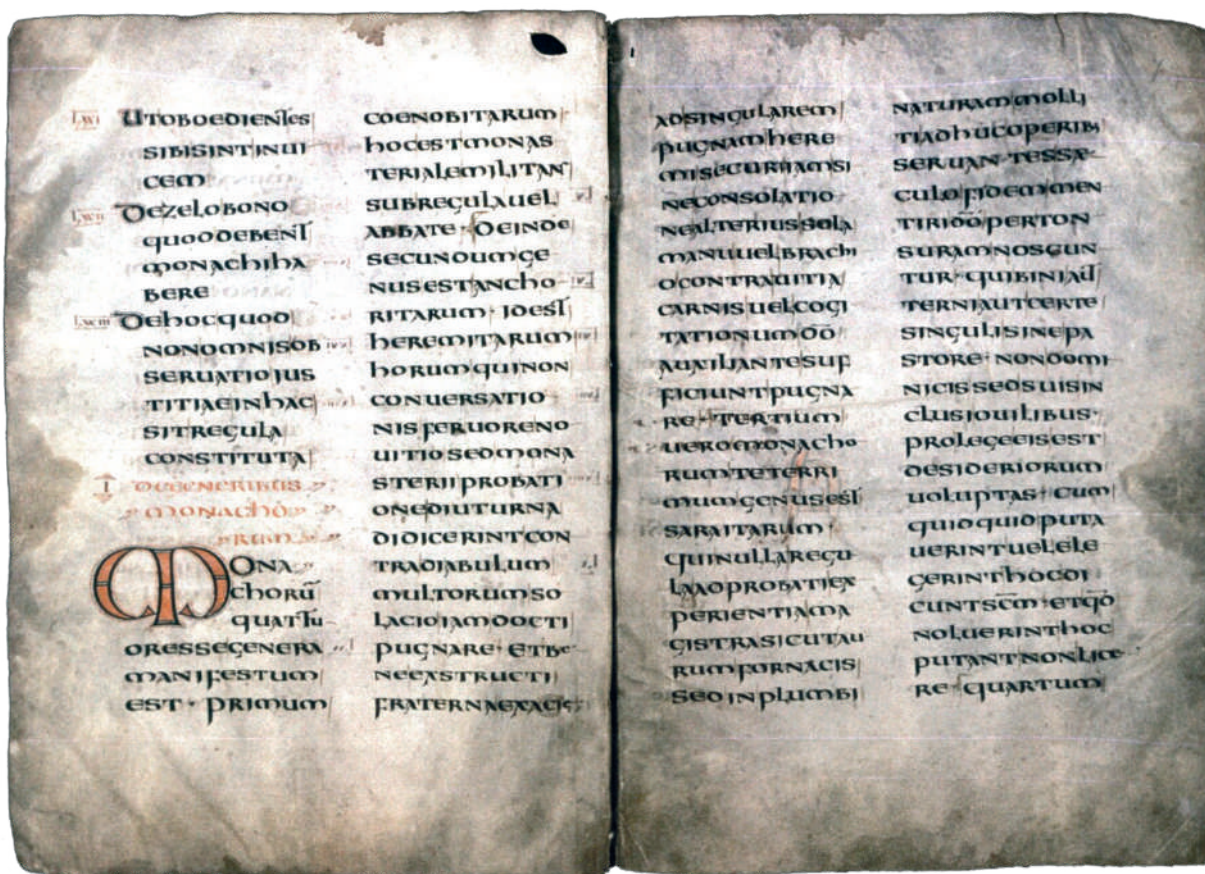 LXVI UTOBOEDIENTES
SIBISINTINUI
CEM
LXVII DEZELOBONO
QUODDEBENT
MONACHIHA
BERE
LXVIII DEHOCQUOD
NONOMNISOB
SERUATIOJUS
TITIAEINHAC
SITREGULA
CONSTITUTA
I DEGENERIBUS
MONACHO
RUM
MONA
CHORŪ
QUATTU
ORESSEGENERA
MANIFESTUM
EST · PRIMUM
COENOBITARUM
HOCESTMONAS
TERIALEMILITANS
SUBREGULAUEL
ABBATE · DEINDE
SECUNDUMGE
NUSESTANCHO
RITARUM · IDEST
HEREMITARUM
HORUMQUINON
CONUERSATIO
NISFERUORENO
UITIOSEDMONA
STERIIPROBATI
ONEDIUTURNA
DIDICERINTCON
TRADIABULUM
MULTORUMSO
LACIOIAMDOCTI
PUGNARE · ETBE
NEEXSTRUCTI
FRATERNAEXACIE
ADSINGULAREM
PUGNAMHERE
MISECURIIAMSI
NECONSOLATIO
NEALTERIUSSOLA
MANUUELBRACHI
OCONTRAUITIA
CARNISUELCOGI
TATIONUMDŌ
AUXILIANTESUF
FICIUNTPUGNA
RE · TERTIUM
UEROMONACHO
RUMTETERRI
MUMGENUSEST
SARAITARUM ·
QUINULLAREGU
LAADPROBATIEX
PERIENTIAMA
GISTRASICUTAU
RUMFORNACIS
SEDINPLUMBI
NATURAMMOLLI
TIADHUCOPERIBS
SERUANTESSAE
CULOFIDEMMEN
TIRIDŌPERTON
SURAMNOSCUN
TUR · QUIBINIAUT
TERNIAUTCERTE
SINGULISINEPA
STORE · NONDOMI
NICISSEDSUISIN
CLUSIOUILIBUS ·
PROLEGEEISEST
DESIDERIORUM
UOLUPTAS · CUM
QUIDQUIDPUTA
UERINTUELELE
GERINTHOCDI
CUNTSCM̄ · ETQŌ
NOLUERINTHOC
PUTANTNONLICE
RE · QUARTUM